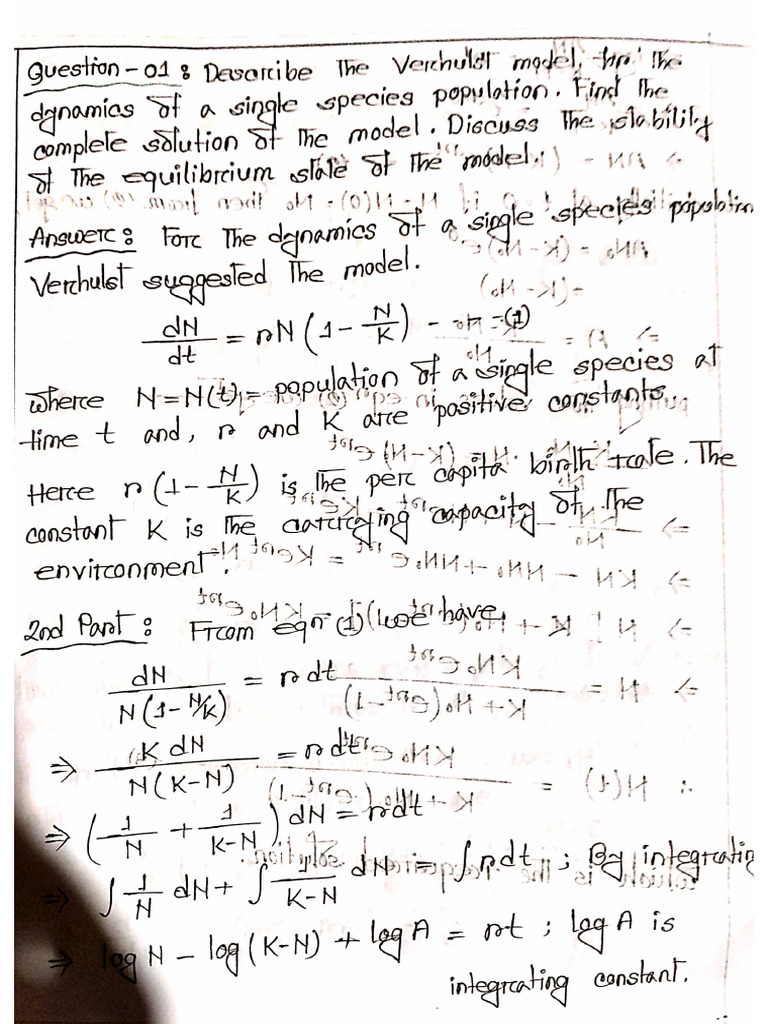 Question-01: Describe The Verchulst model, for The
dynamics of a single species population. Find The
complete solution of The model. Discuss The stability
of The equilibrium state of The model.
Answer: For The dynamics of a single species population
Verchulst suggested The model.
dN/dt = rN(1 - N/K) - - - (1)
Where N = N(t) = population of a single species at
time t and, r and K are positive constants.
Here r(1 - N/K) is The per capita birth rate. The
constant K is The carrying capacity of The
environment.
2nd Part: From eqn (1) we have,
dN / N(1 - N/K) = r dt
⇒ K dN / N(K-N) = r dt
⇒ (1/N + 1/K-N) dN = r dt
⇒ ∫ 1/N dN + ∫ 1/K-N dN = ∫ r dt ; By integrating
⇒ log N - log(K-N) + log A = rt ; log A is
integrating constant.